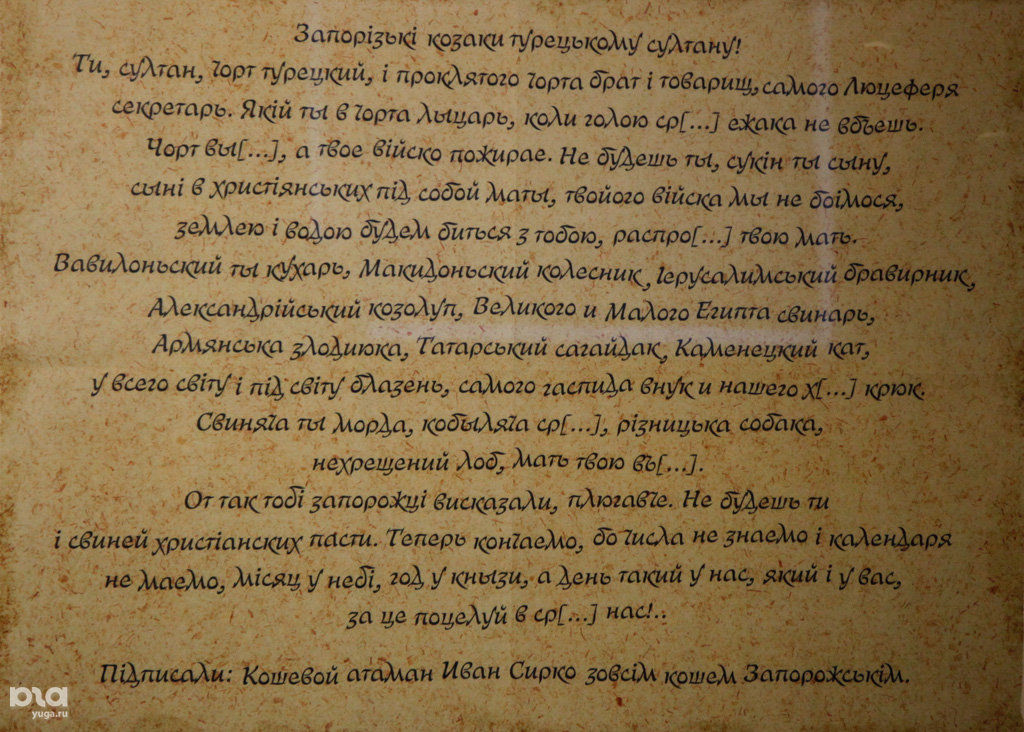 Запорізькі козаки турецькому султану!
Ти, султан, чорт турецкий, і проклятого чорта брат і товарищ, самого Люцеферя
секретарь. Якій ты в чорта лыцарь, коли голою ср[...] ежака не вбъешь.
Чорт вы[...], а твое війско пожирае. Не будешь ты, сукін ты сыну,
сыні в христіянських під собой маты, твойого війска мы не боімося,
землею і водою будем биться з тобою, распро[...] твою мать.
Вавилоньский ты кухарь, Макидоньский колесник, Іерусалимський бравирник,
Александрійський козолуп, Великого и Малого Египта свинарь,
Армянська злодиюка, Татарський сагайдак, Каменецкий кат,
у всего світу і під світу блазень, самого гаспида внук и нашего х[...] крюк.
Свиняча ты морда, кобыляча ср[...], різницька собака,
нехрещений лоб, мать твою въ[...].
От так тобі запорожці висказали, плюгавче. Не будешь ти
і свиней христіанских пасти. Теперь кончаемо, бо числа не знаемо і календаря
не маемо, місяц у небі, год у кнызи, а день такий у нас, який і у вас,
за це поцелуй в ср[...] нас!..
Підписали: Кошевой атаман Иван Сирко зовсім кошем Запорожськім.
yuga.ru